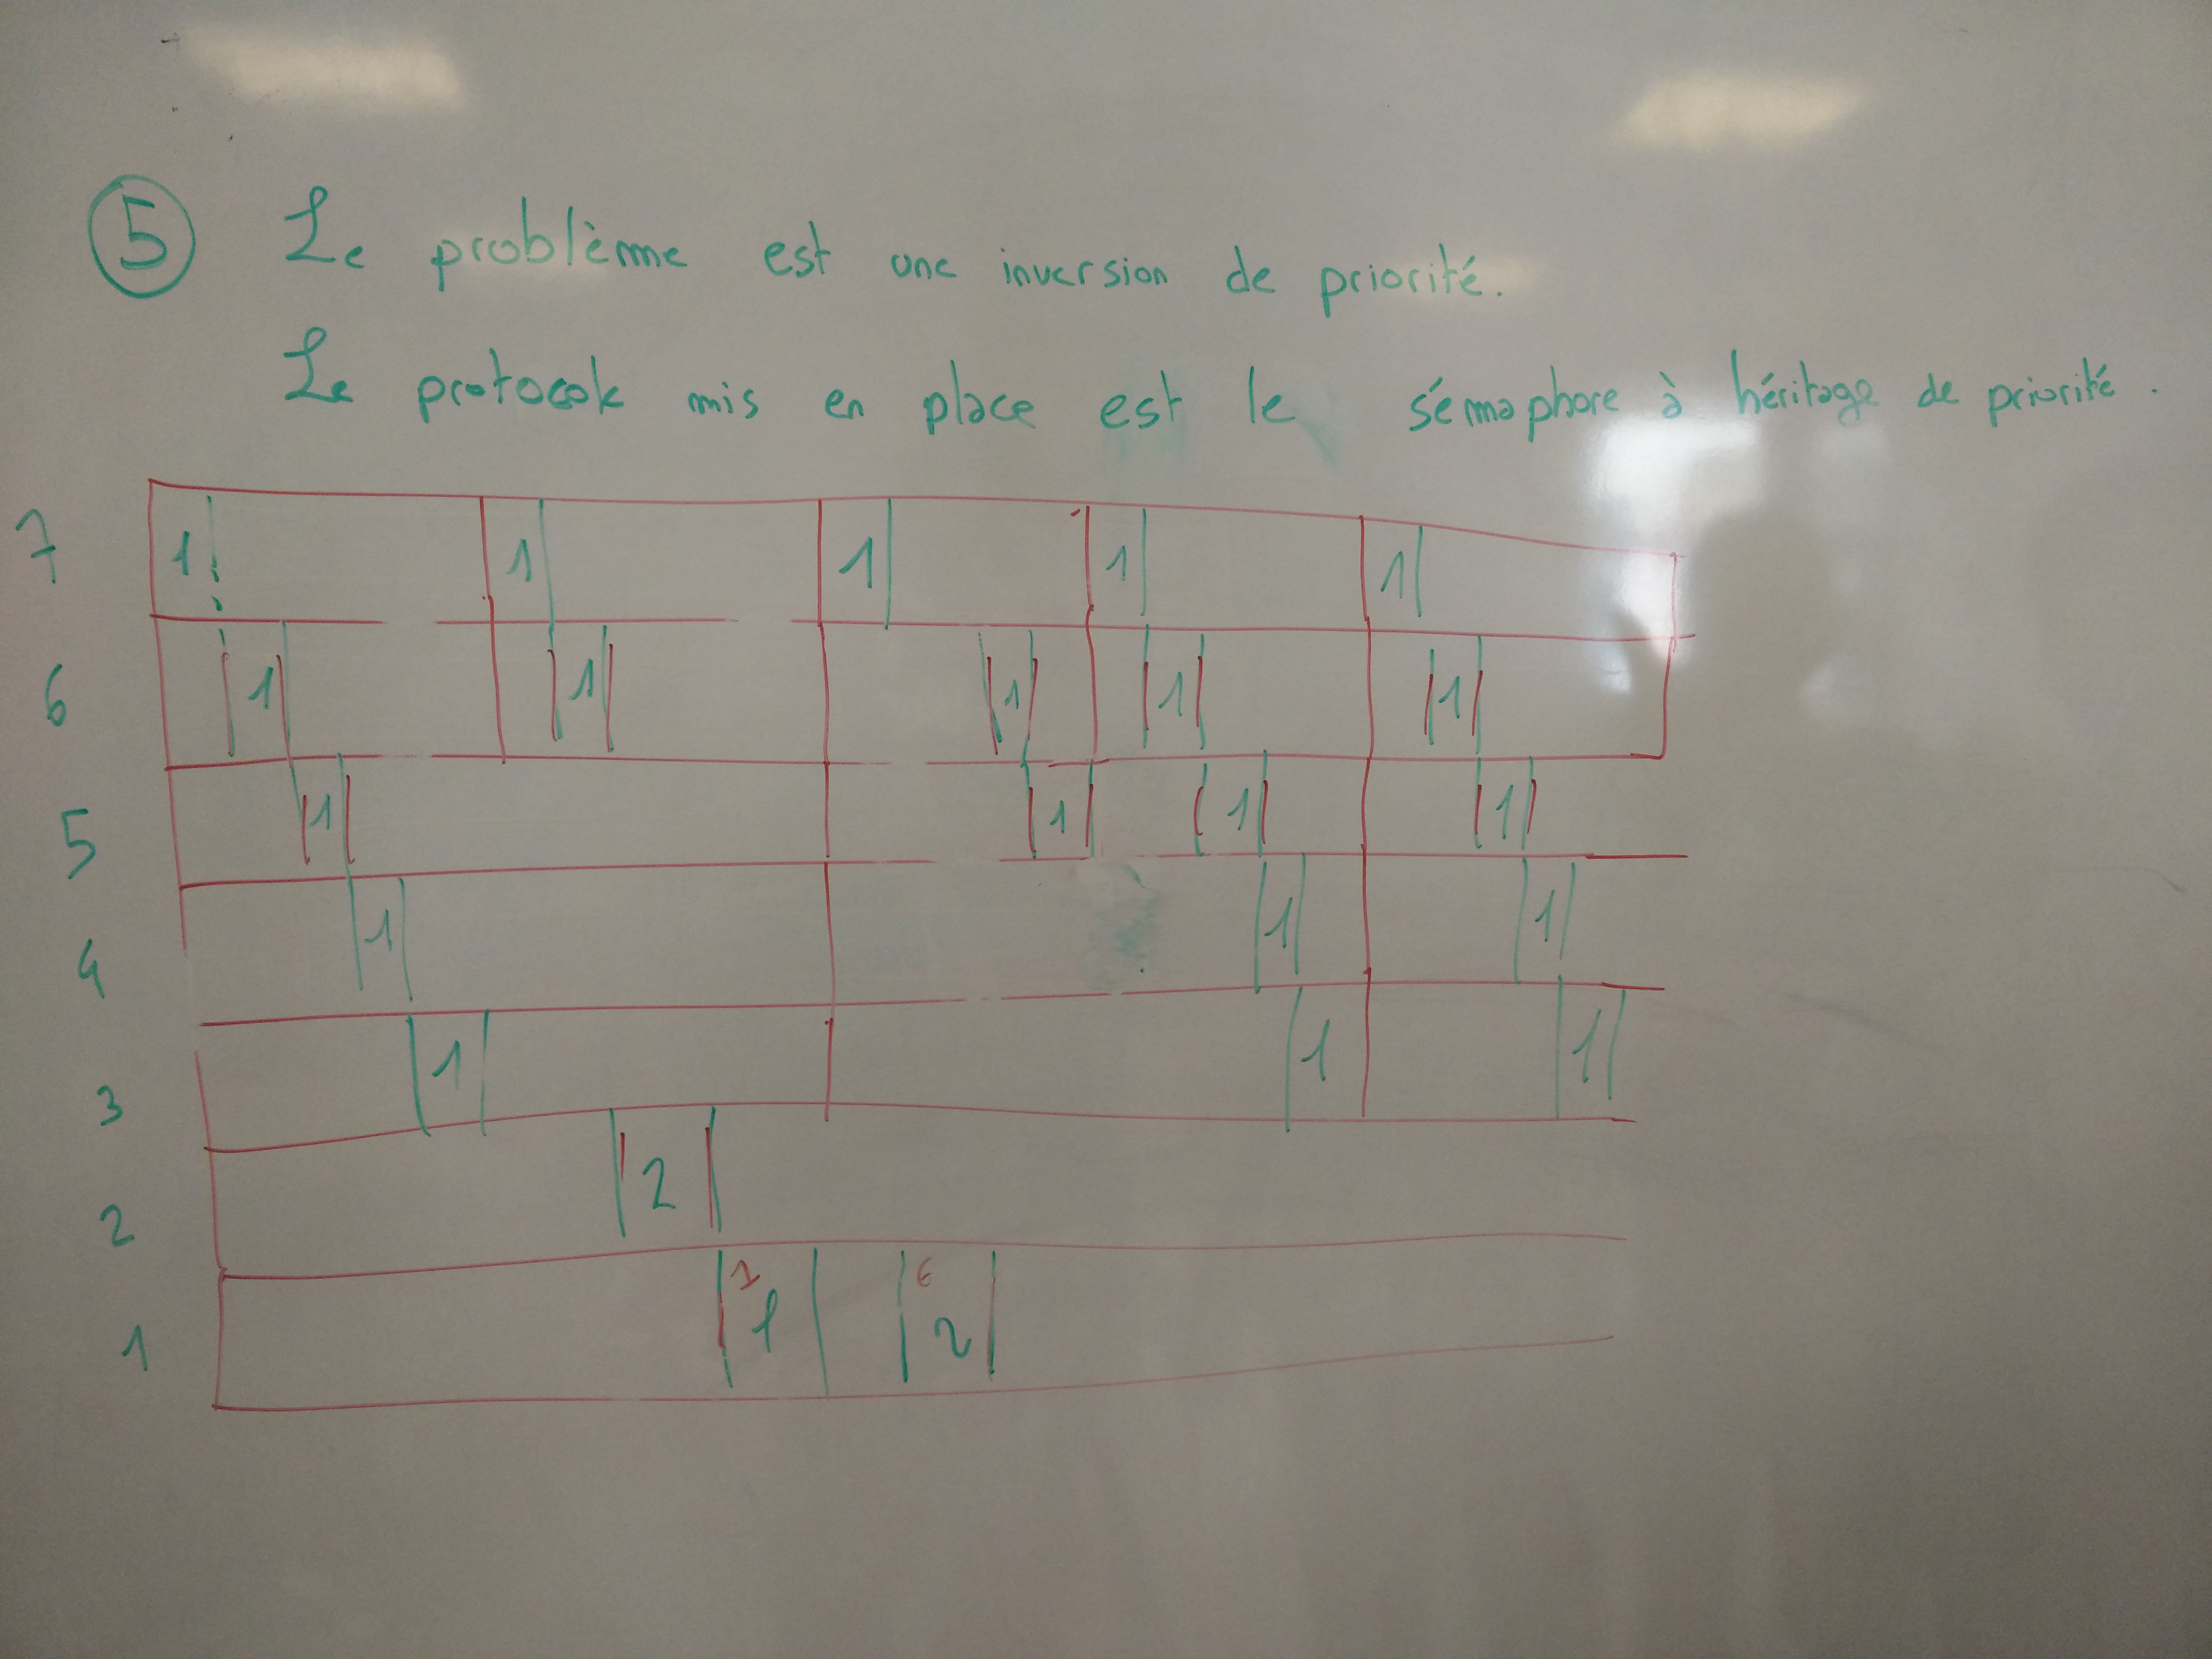 5 Le problème est une inversion de priorité.
Le protocole mis en place est le sémaphore à héritage de priorité.
7 1 1 1 1 1
6 1 1 1 1 1
5 1 1 1 1
4 1 1 1
3 1 1 1
2 2
1 1 1 6 2